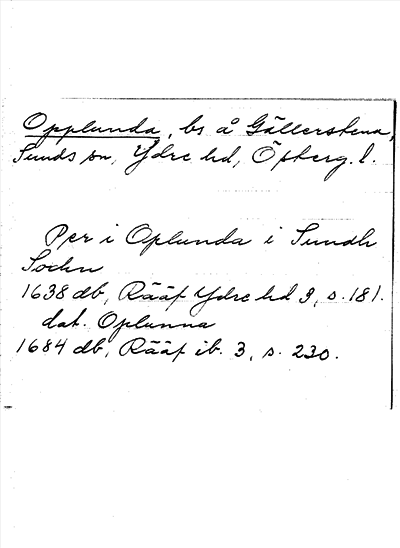 Opplunda, bs å Gällerstena,
Sunds sn, Ydre hd, Östberg. l.
Per i Oplunda i Sundh
Sochn
1638 db, Rääf Ydre hd 3, s. 181.
dat. Oplunna
1684 db, Rääf ib. 3, s. 230.